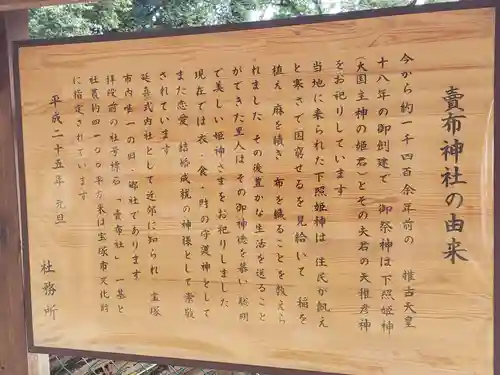 賣布神社の由来
今から約一千四百余年前の 推古天皇
十八年の御創建で 御祭神は下照姫神
(大国主神の姫君)とその夫君の天稚彦神
をお祀りしています
当地に来られた下照姫神は 住民が飢え
と寒さで困窮せるを見給いて 稲を
植え 麻を績き 布を織ることを教えら
れました その後豊かな生活を送ること
ができた里人は その御神徳を慕い 聡明
で美しい姫神さまをお祀りしました
現在では衣・食・財の守護神として
また恋愛 結婚成就の神様として崇敬
されています
延喜式内社として近郊に知られ 宝塚
市内唯一の旧・郷社であります
拝殿前の社号標石「賣布社」一基と
社叢約四一〇〇平方米は宝塚市文化財
に指定されています
平成二十五年 元旦
社務所